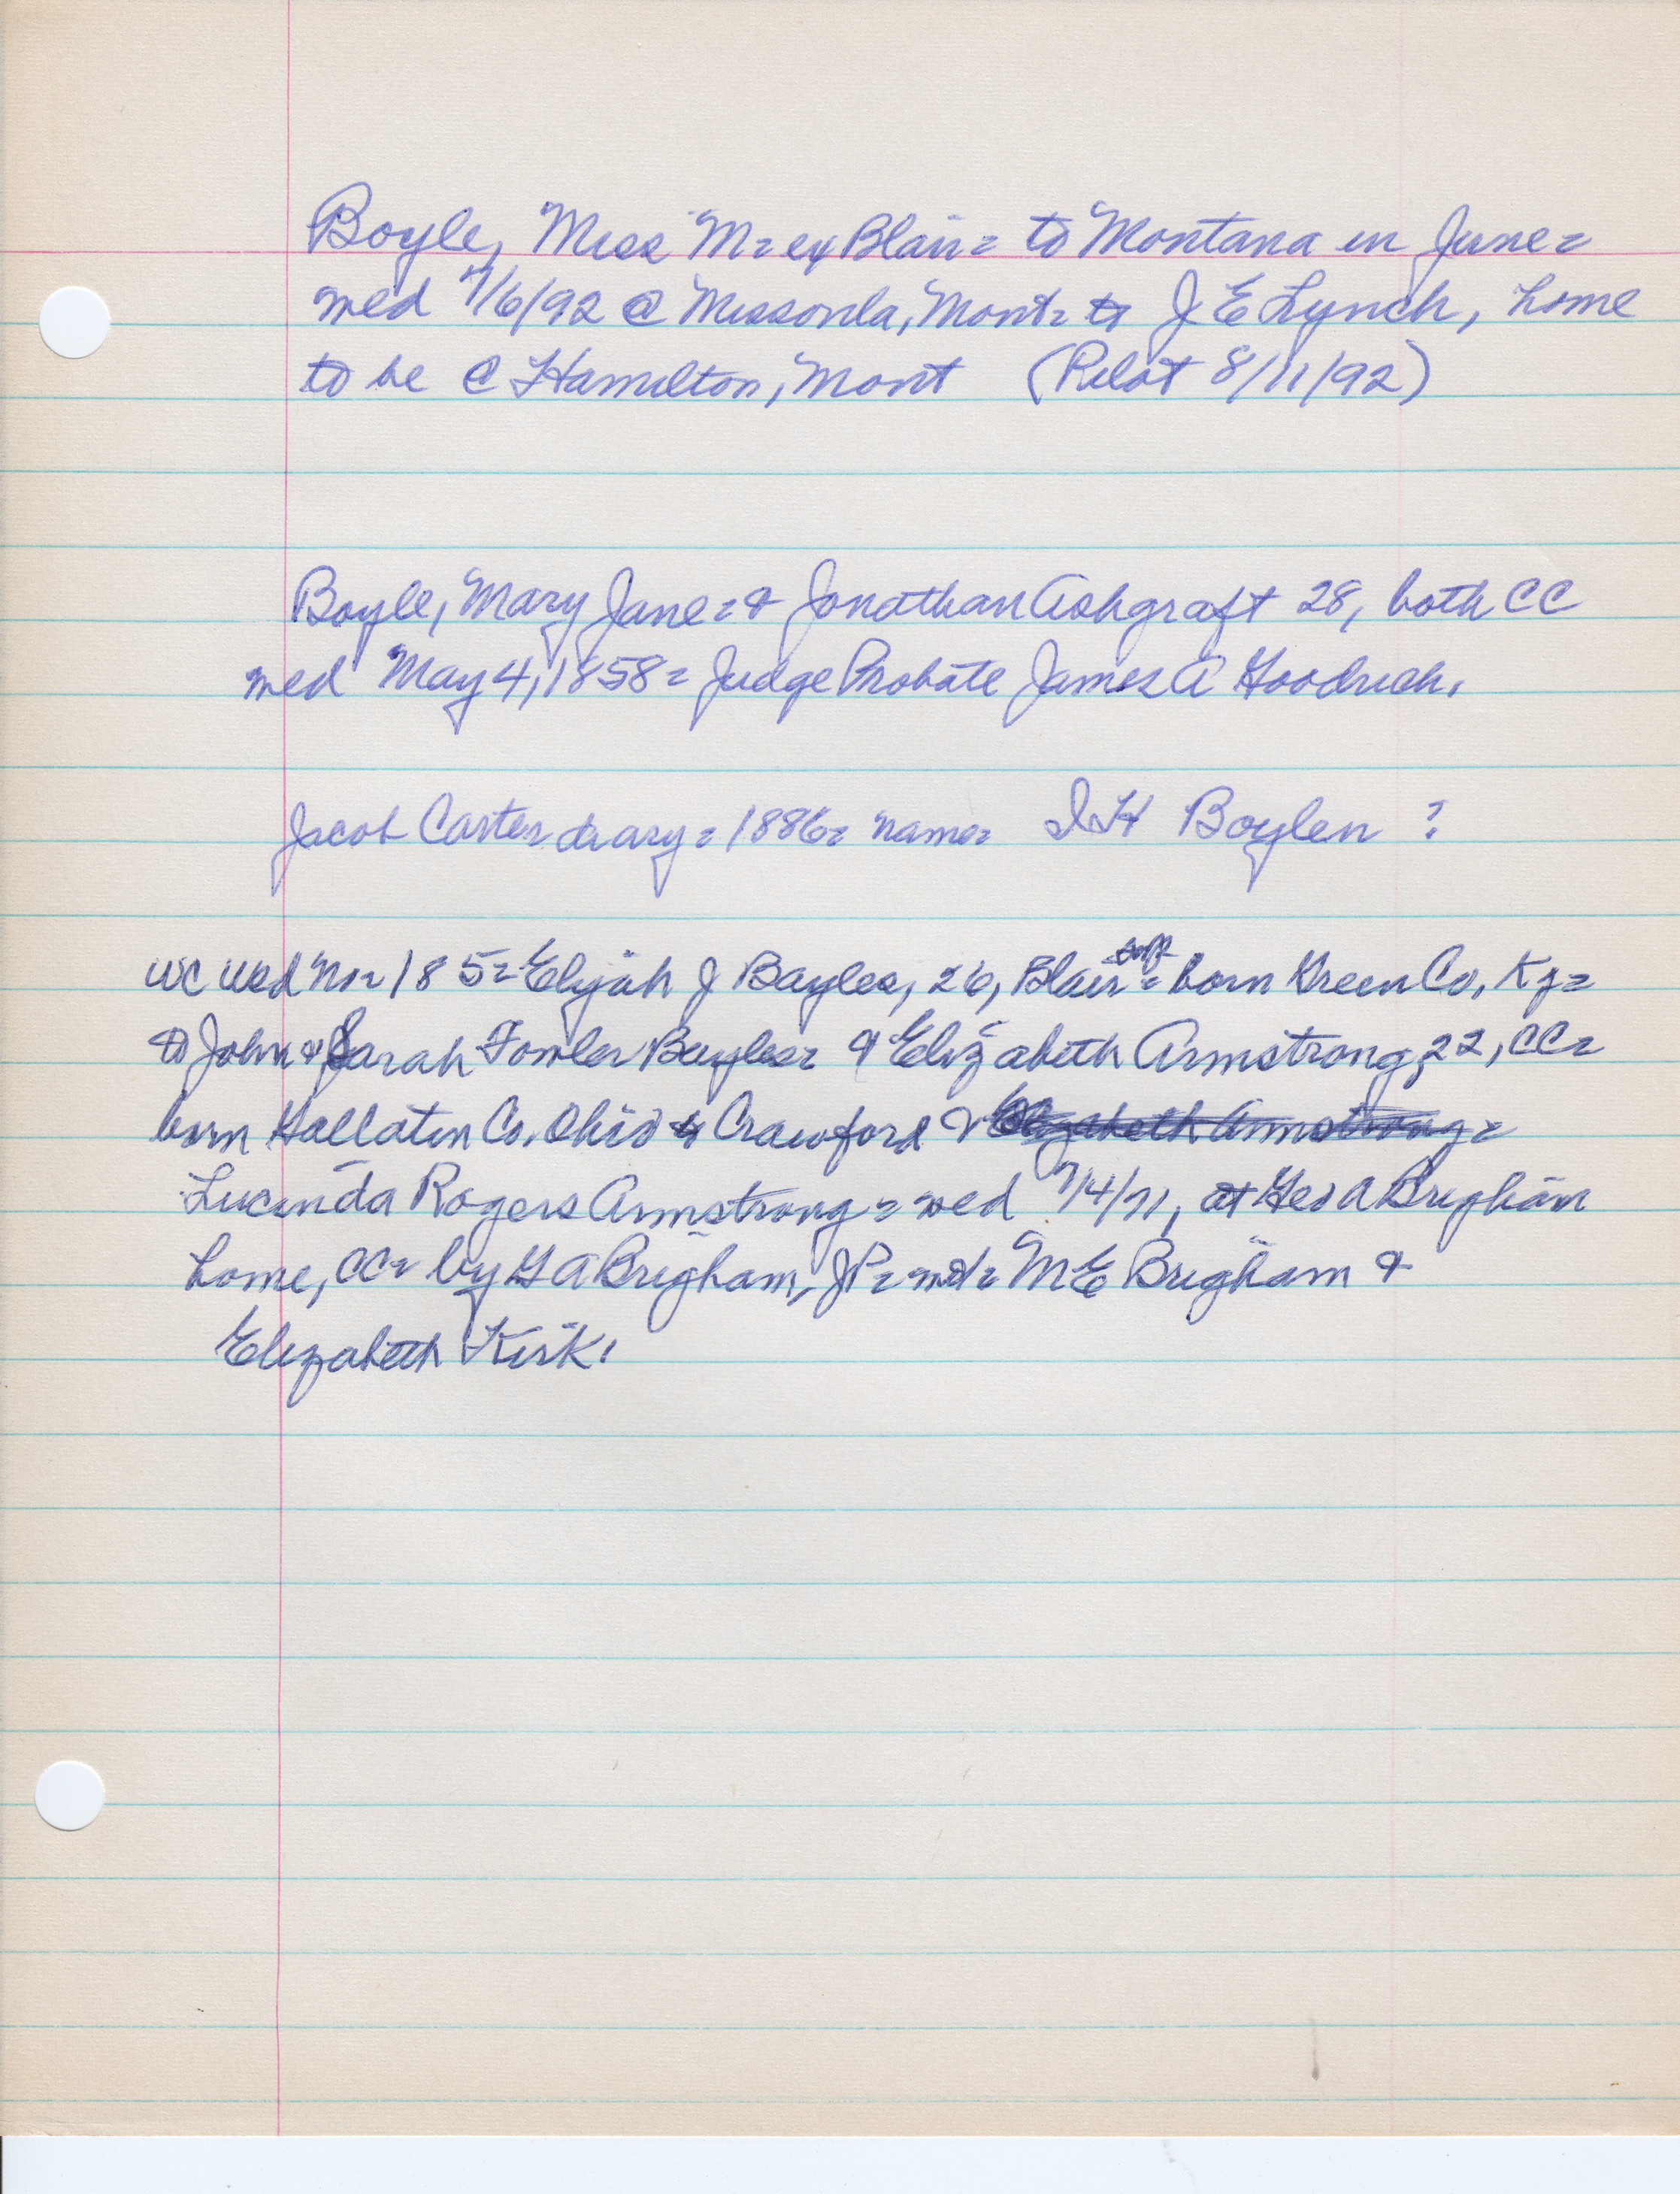 Boyle, Miss M = ex Blair = to Montana in June =
wed 7/6/92 @ Missoula, Mont = to J E Lynch, home
to be @ Hamilton, Mont (Pilot 8/11/92)
Boyle, Mary Jane = & Jonathan Ashgraft 28, both CC
wed May 4, 1858 = Judge Probate James A Goodrich.
Jacob Carter diary = 1886 = name = I H Boylen ?
WC Wed No = 185 = Elijah J Bayles, 26, Blair = born Green Co, Ky =
to John & Sarah Fowler Bayles = & Elizabeth Armstrong, 22, CC =
born Gallatin Co. Ohio to Crawford & Elizabeth Armstrong =
Lucinda Rogers Armstrong = wed 7/4/71, at Geo A Brigham
home, CC = by G A Brigham, JP = = M E Brigham &
Elizabeth Kirk.